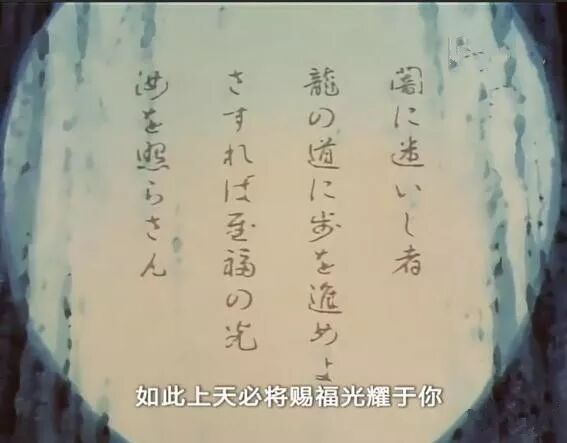 闇に迷いし者
龍の道に歩を進めよ
さすれば至福の光
汝を照らさん
如此上天必将赐福光耀于你